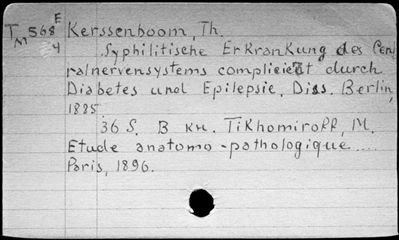 E
TM 568 Kerssenboom, Th.
4
Syphilitische Erkrankung des Cen
ralnervensystems compliciezt durch
Diabetes und Epilepsie, Diss. Berlin,
1885.
36 S. В кн. Tikhomiroff, M.
Etude anatomo-pathologique ....
Paris, 1896.